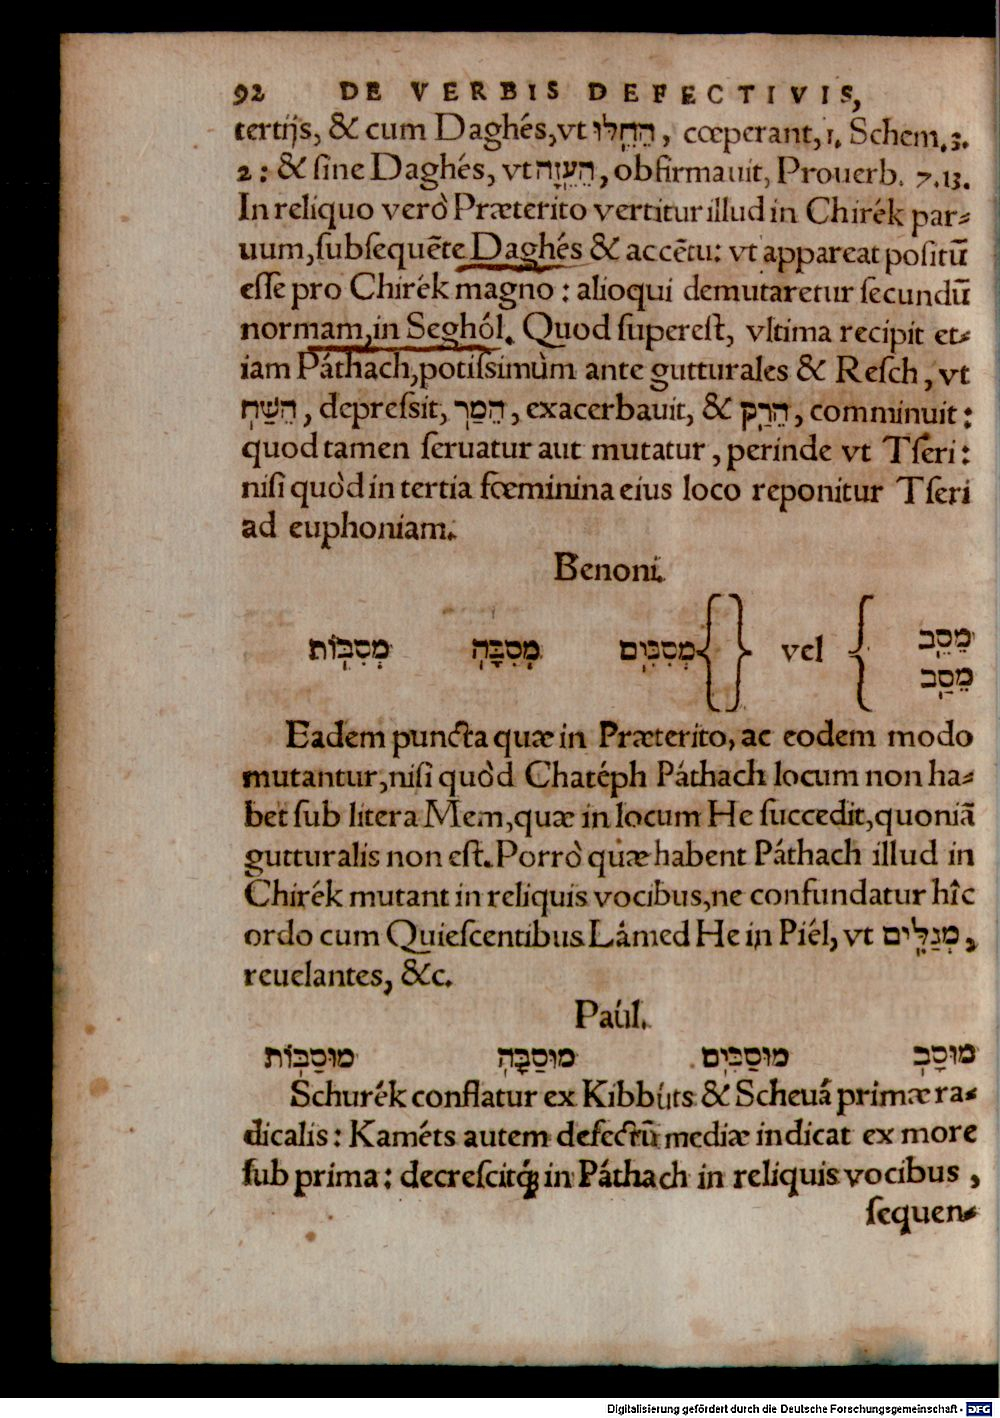 92 DE VERBIS DEFECTIVIS,
tertijs, & cum Daghés, vt הֵחֵלּוּ, cœperant, 1. Schem. 3.
2: & sine Daghés, vt הֵעֵזָה, obfirmauit, Prouerb. 7.13.
In reliquo verò Præterito vertitur illud in Chirék par-
uum, subsequẽte Daghés & accẽtu: vt appareat positũ
esse pro Chirék magno: alioqui demutaretur secundũ
normam, in Seghól. Quod superest, vltima recipit et-
iam Páthach, potissimùm ante gutturales & Resch, vt
הֵשַׁח, depressit, הֵמַר, exacerbauit, & הֵדַק, comminuit:
quod tamen seruatur aut mutatur, perinde vt Tseri:
nisi quòd in tertia fœminina eius loco reponitur Tseri
ad euphoniam.
Benoni.
מֵסֵב
מֵסַב } vel { מְסִבִּים מְסִבָּה מְסִבּוֹת
Eadem puncta quæ in Præterito, ac eodem modo
mutantur, nisi quòd Chatéph Páthach locum non ha-
bet sub litera Mem, quæ in locum He succedit, quoniã
gutturalis non est. Porrò quæ habent Páthach illud in
Chirék mutant in reliquis vocibus, ne confundatur hîc
ordo cum Quiescentibus Lámed He in Piél, vt מְגַלִּים,
reuelantes, &c.
Paúl.
מוּסָב מוּסַבִּים מוּסַבָּה מוּסַבּוֹת
Schurék conflatur ex Kibbúts & Scheuá primæ ra-
dicalis: Kaméts autem defectũ mediæ indicat ex more
sub prima: decrescitq́; in Páthach in reliquis vocibus,
sequen-
Digitalisierung gefördert durch die Deutsche Forschungsgemeinschaft - DFG